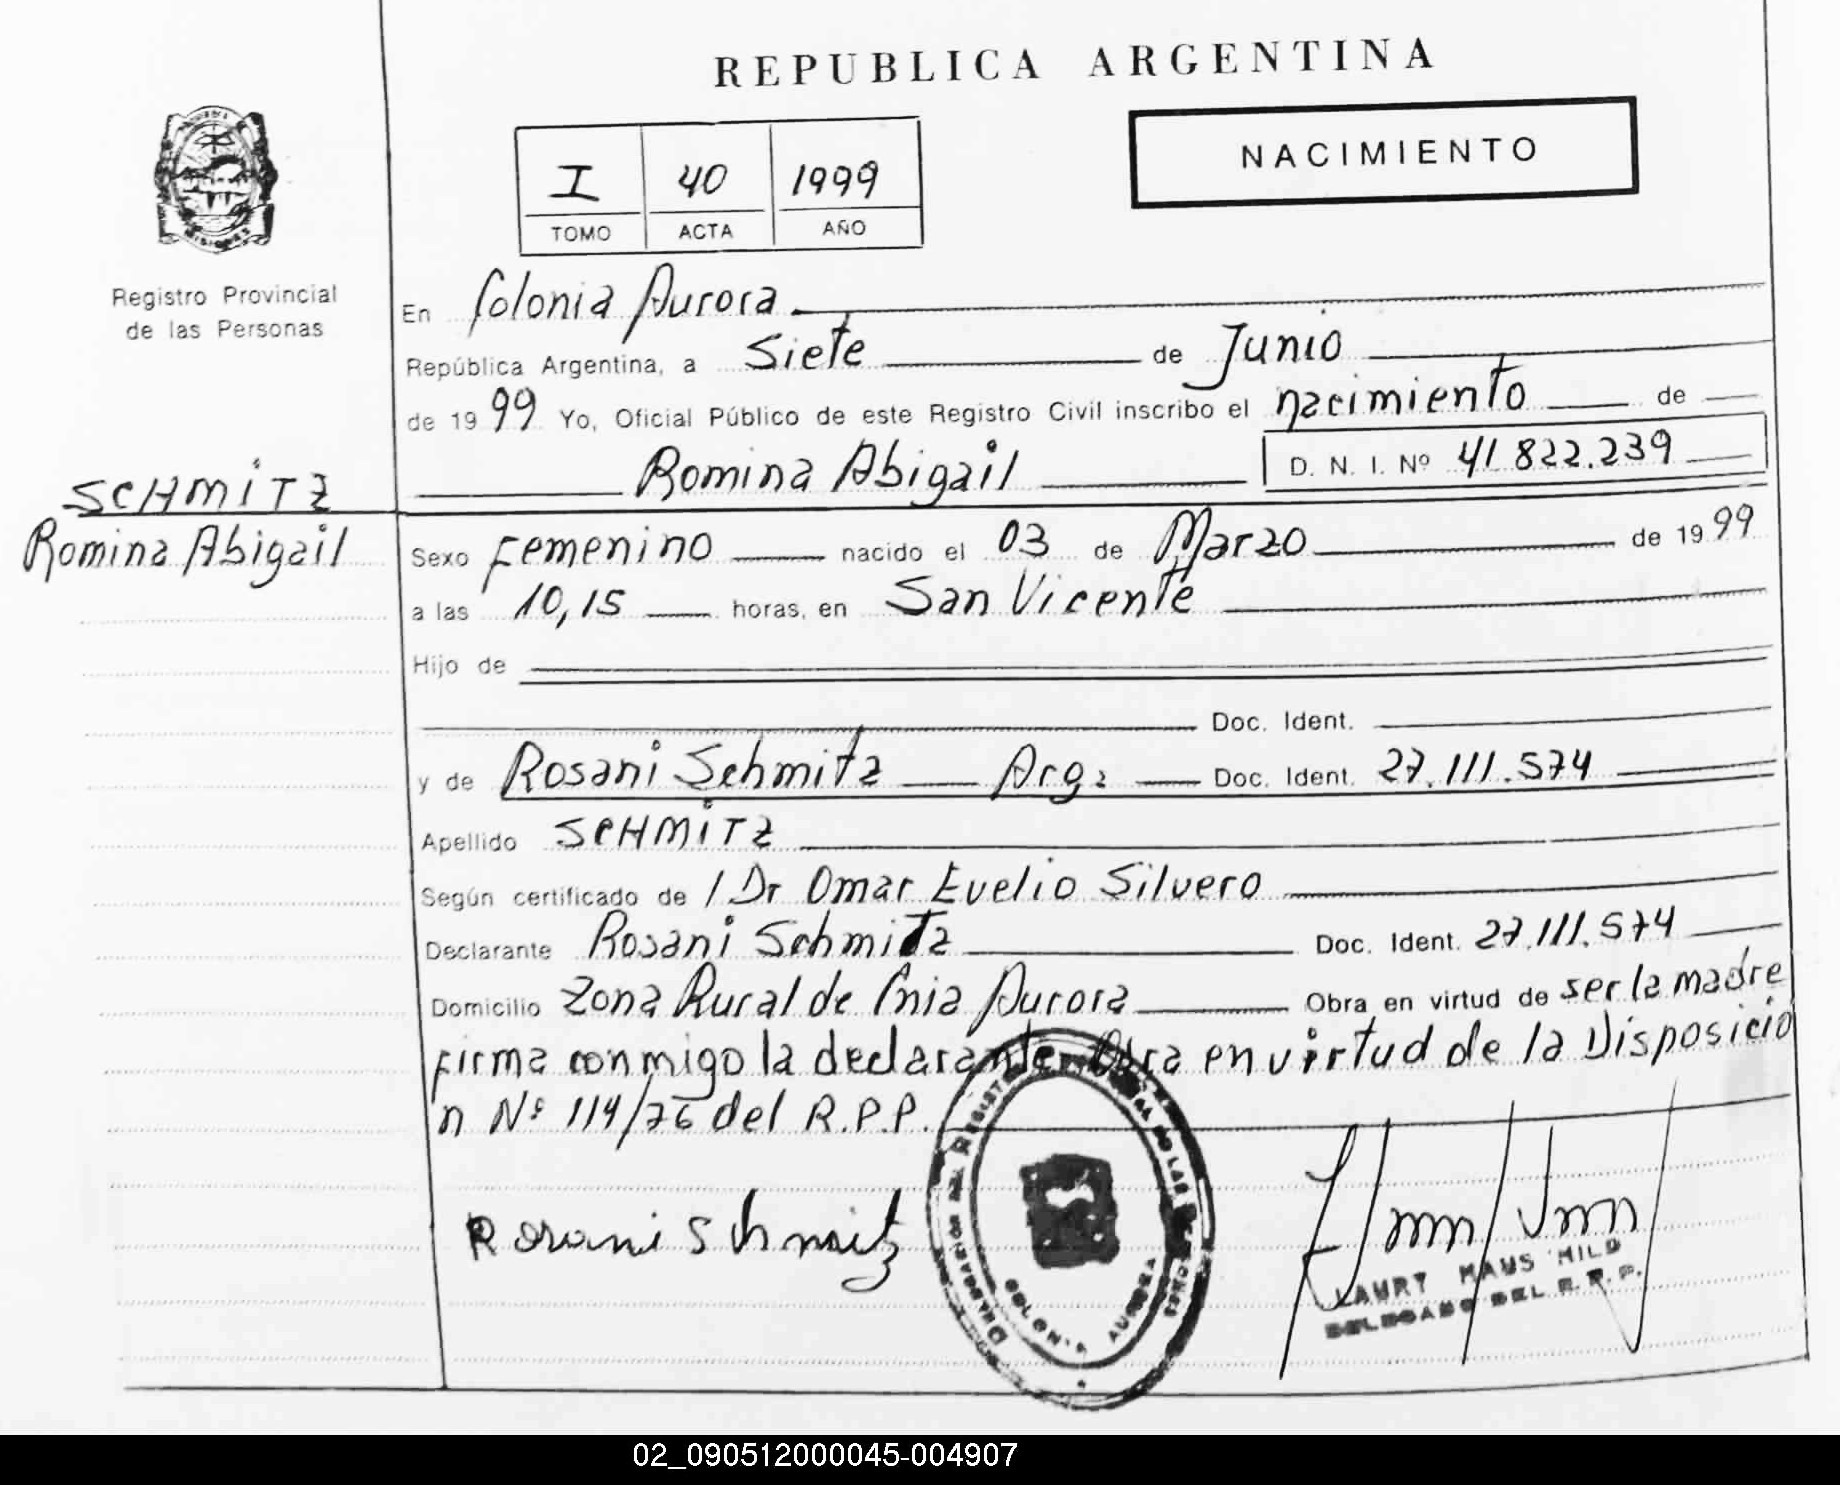 REPUBLICA ARGENTINA
NACIMIENTO
I 40 1999
TOMO ACTA AÑO
MISIONES
Registro Provincial
de las Personas
En Colonia Aurora
República Argentina, a Siete de Junio
de 1999 Yo, Oficial Público de este Registro Civil inscribo el nacimiento de
Romina Abigail D. N. I. Nº 41.822.239
SCHMITZ
Romina Abigail
Sexo Femenino nacido el 03 de Marzo de 1999
a las 10,15 horas, en San Vicente
Hijo de
Doc. Ident.
y de Rosani Schmitz Arg: Doc. Ident. 27.111.574
Apellido SCHMITZ
Según certificado de / Dr Omar Evelio Silvero
Declarante Rosani Schmitz Doc. Ident. 27.111.574
Domicilio Zona Rural de Cnia Aurora Obra en virtud de ser la madre
Firma conmigo la declarante. Obra en virtud de la Disposició
n Nº 114/76 del R.P.P.
Rosani Schmitz
DELEGACION DEL REGISTRO DE LAS
COLONIA AURORA
LAURY MAUS HILD
DELEGADO DEL R.R.P.
02_090512000045-004907